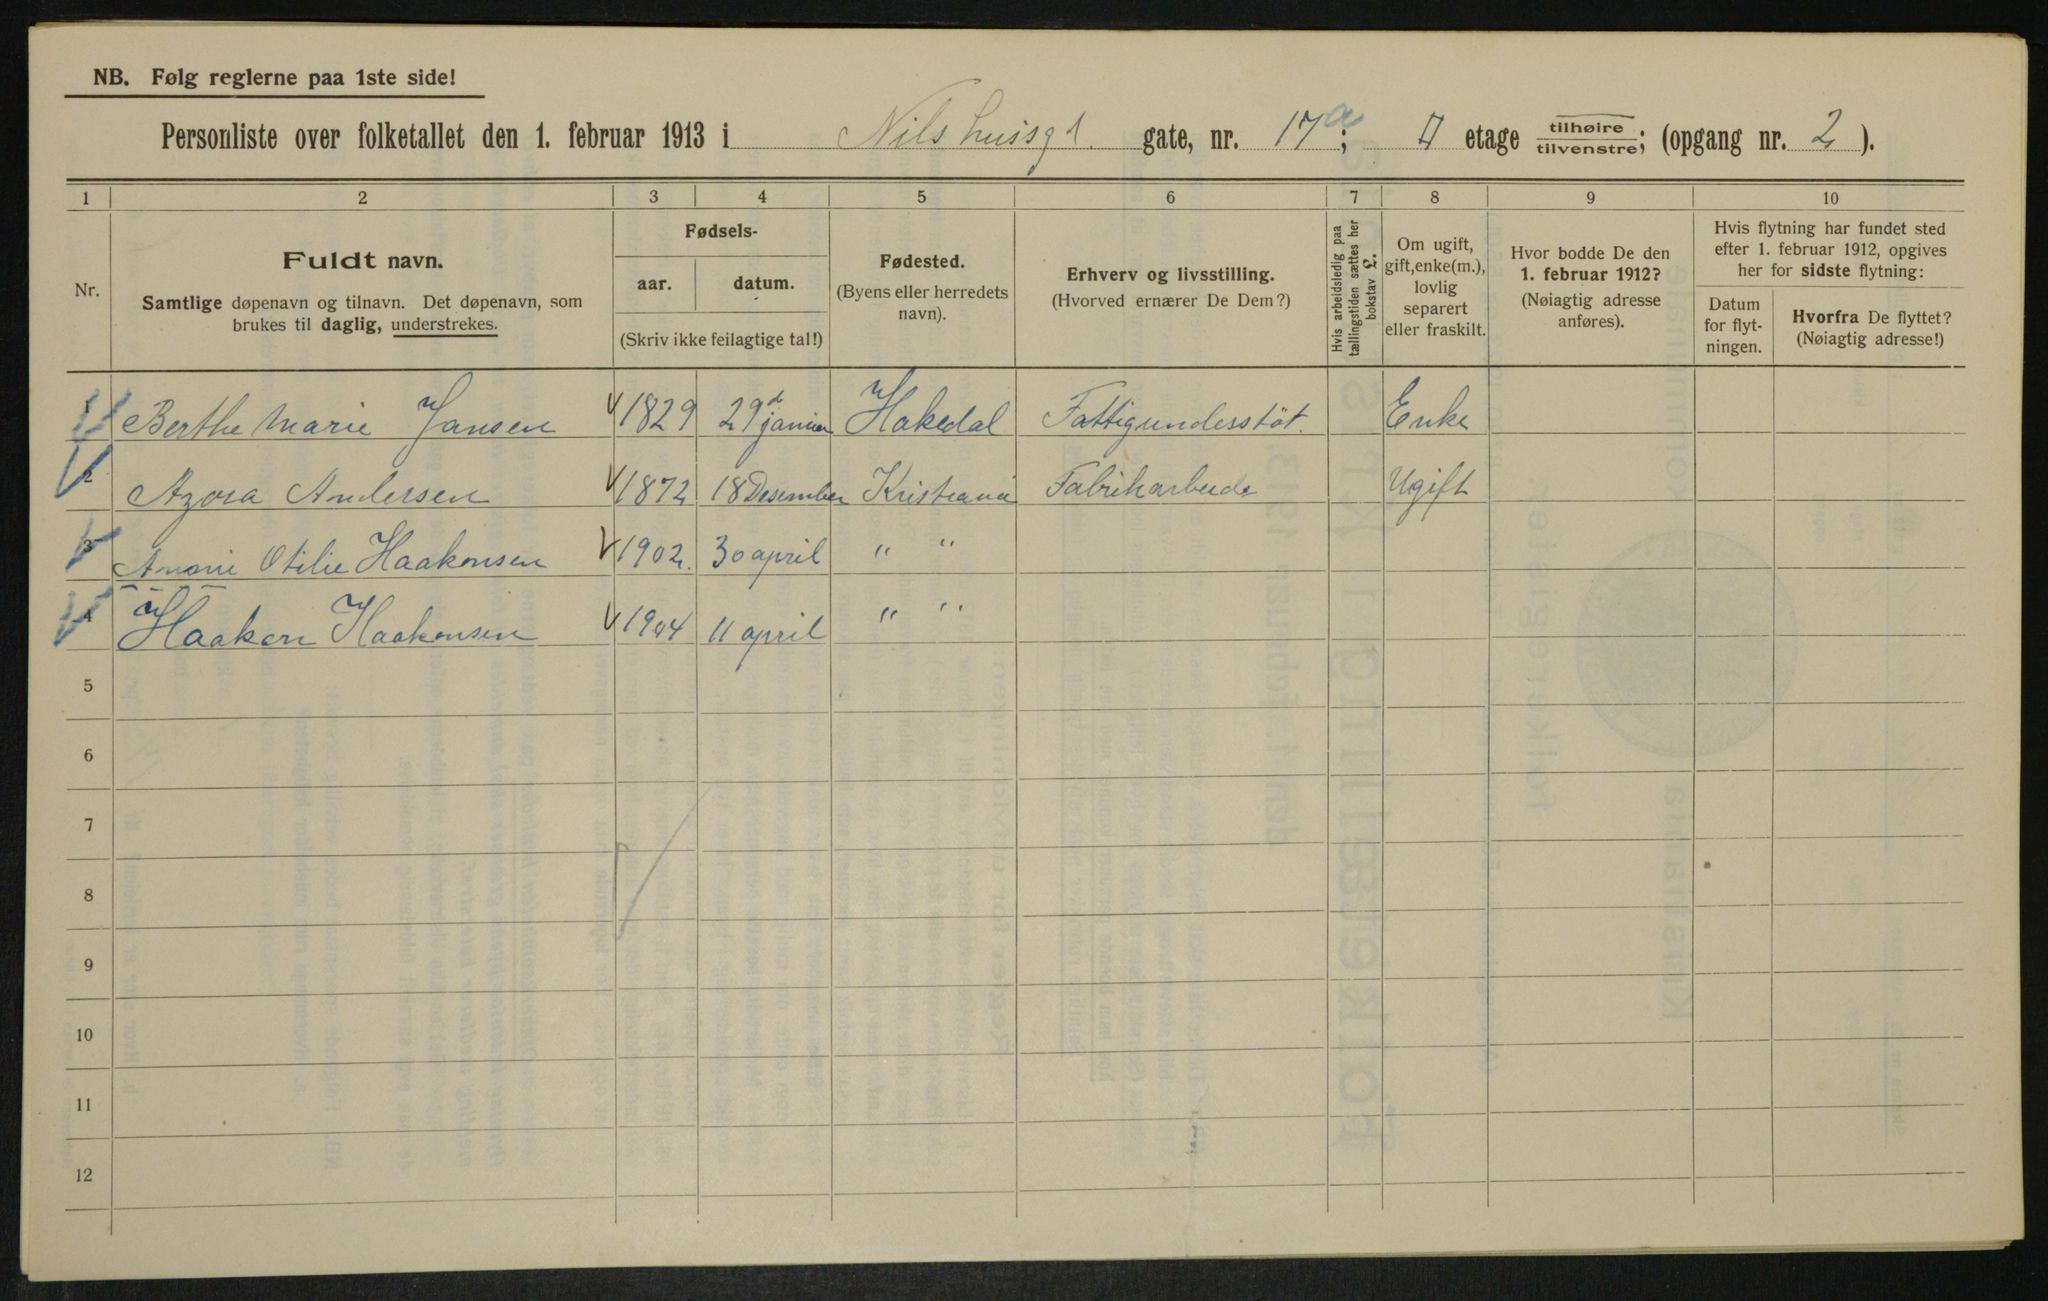 NB. Følg reglerne paa 1ste side!
Personliste over folketallet den 1. februar 1913 i Nils hussgt. gate, nr. 17a; etage tilhøire tilvenstre; (opgang nr. 2).
1 2 3 4 5 6 7 8 9 10
Nr.
Fuldt navn.
Samtlige døpenavn og tilnavn. Det døpenavn, som
brukes til daglig, understrekes.
Fødsels-
aar. datum.
(Skriv ikke feilagtige tal!)
Fødested.
(Byens eller herredets
navn).
Erhverv og livsstilling.
(Hvorved ernærer De Dem?)
Hvis arbeidsledig paa
tællingstiden sættes her
bokstav L.
Om ugift,
gift, enke(m.),
lovlig
separert
eller fraskilt.
Hvor bodde De den
1. februar 1912?
(Nøiagtig adresse
anføres).
Hvis flytning har fundet sted
efter 1. februar 1912, opgives
her for sidste flytning:
Datum
for flyt-
ningen.
Hvorfra De flyttet?
(Nøiagtig adresse!)
1 Berthe Marie Jansen 1829 29d januar Hakedal Fattigundesstöt. Enke
2 Azora Andersen 1872 18 Desember Kristiania Fabrikarbeide Ugift
3 Otilie Haakonsen 1902. 30 april " "
4 Haakon Haakonsen 1904 11 april " "
5
6
7
8
9
10
11
12